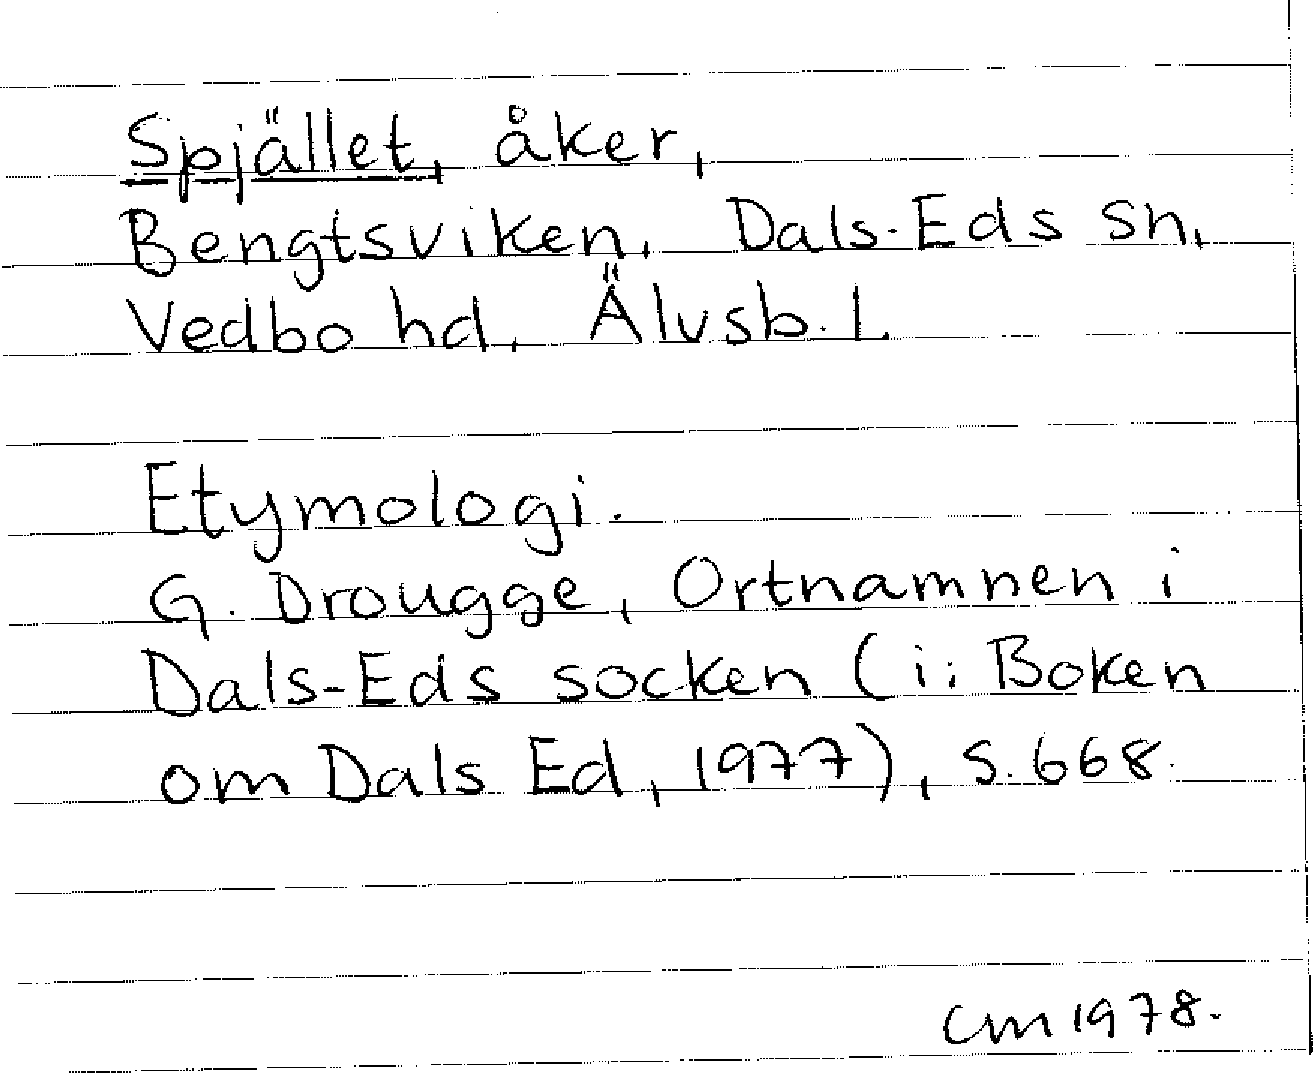 Spjället, åker,
Bengtsviken, Dals-Eds sn,
Vedbo hd, Älvsb. l.
Etymologi.
G. Drougge, Ortnamnen i
Dals-Eds socken (i: Boken
om Dals Ed, 1977), s. 668.
CM 1978.